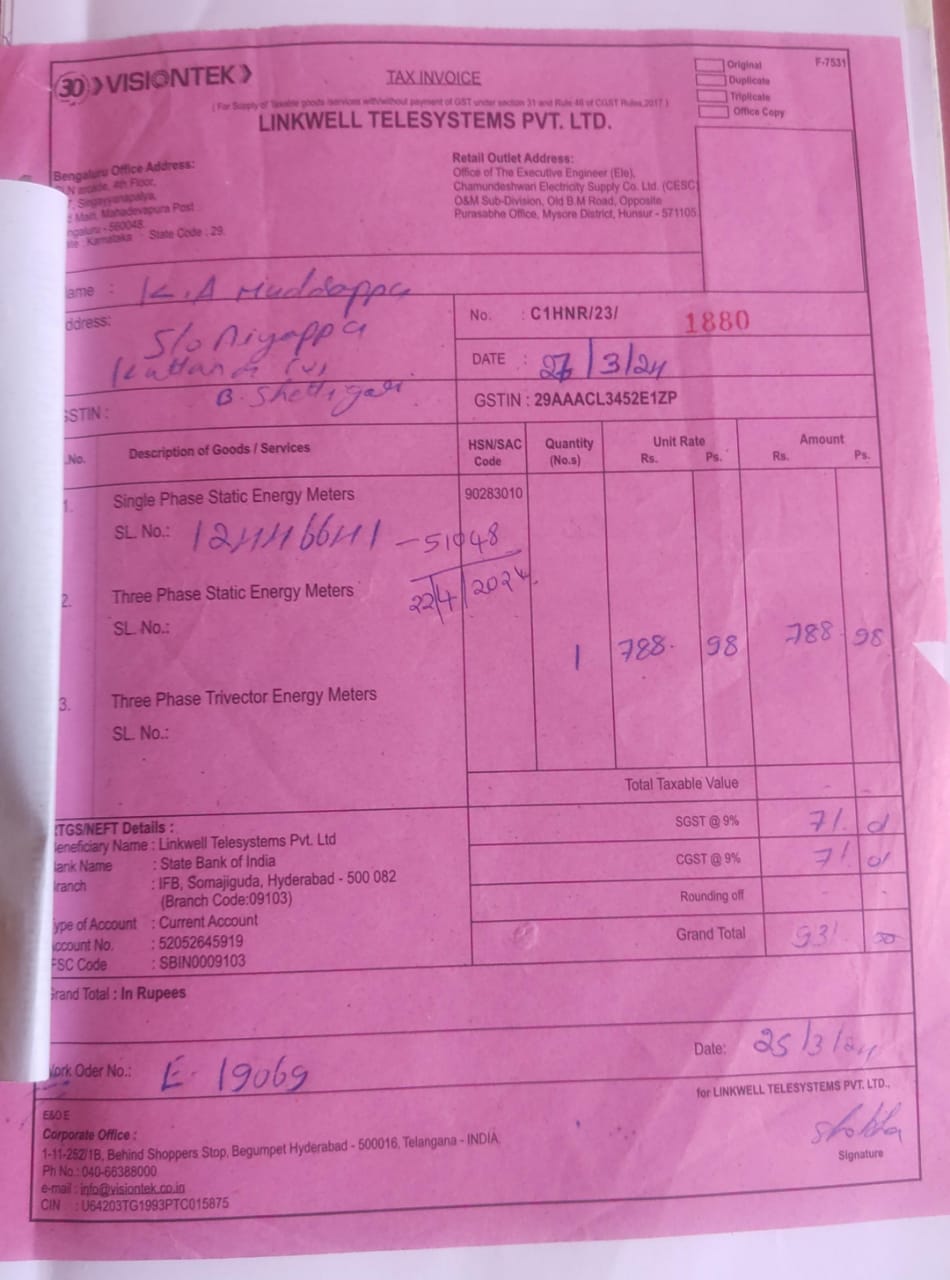 30 VISIONTEK
TAX INVOICE
Original
Duplicate
Triplicate
Office Copy
F-7531
( For Supply of Taxable goods /services with/without payment of GST under section 31 and Rule 46 of CGST Rules,2017 )
LINKWELL TELESYSTEMS PVT. LTD.
Bengaluru Office Address:
N arcade, 4th Floor,
Singayyanapalya,
Main, Mahadevapura Post
ngaluru - 560048.
ate : Karnataka State Code : 29.
Retail Outlet Address:
Office of The Executive Engineer (Ele),
Chamundeshwari Electricity Supply Co. Ltd. (CESC)
O&M Sub-Division, Old B.M Road, Opposite
Purasabhe Office, Mysore District, Hunsur - 571105.
ame : K.A Muddappa
ddress: S/o Aiyappa
B. Shettigeri
STIN :
No. : C1HNR/23/ 1880
DATE : /3/24
GSTIN : 29AAACL3452E1ZP
.No. Description of Goods / Services HSN/SAC Code Quantity (No.s) Unit Rate Rs. Ps. Amount Rs. Ps.
1. Single Phase Static Energy Meters 90283010
SL. No.: - 51948
22/4/2024.
2. Three Phase Static Energy Meters
SL. No.:
1 788. 98 788. 98
3. Three Phase Trivector Energy Meters
SL. No.:
Total Taxable Value - -
SGST @ 9% 71.
CGST @ 9% 71.
Rounding off - -
Grand Total 931.
TGS/NEFT Details :
eneficiary Name : Linkwell Telesystems Pvt. Ltd
ank Name : State Bank of India
ranch : IFB, Somajiguda, Hyderabad - 500 082
(Branch Code:09103)
ype of Account : Current Account
ccount No. : 52052645919
FSC Code : SBIN0009103
Grand Total : In Rupees
Work Oder No.: E- 19069
Date: 25/3/24
for LINKWELL TELESYSTEMS PVT. LTD.,
Signature
E&O E
Corporate Office :
1-11-252/1B, Behind Shoppers Stop, Begumpet Hyderabad - 500016, Telangana - INDIA.
Ph No : 040-66388000
e-mail : info@visiontek.co.in
CIN : U64203TG1993PTC015875